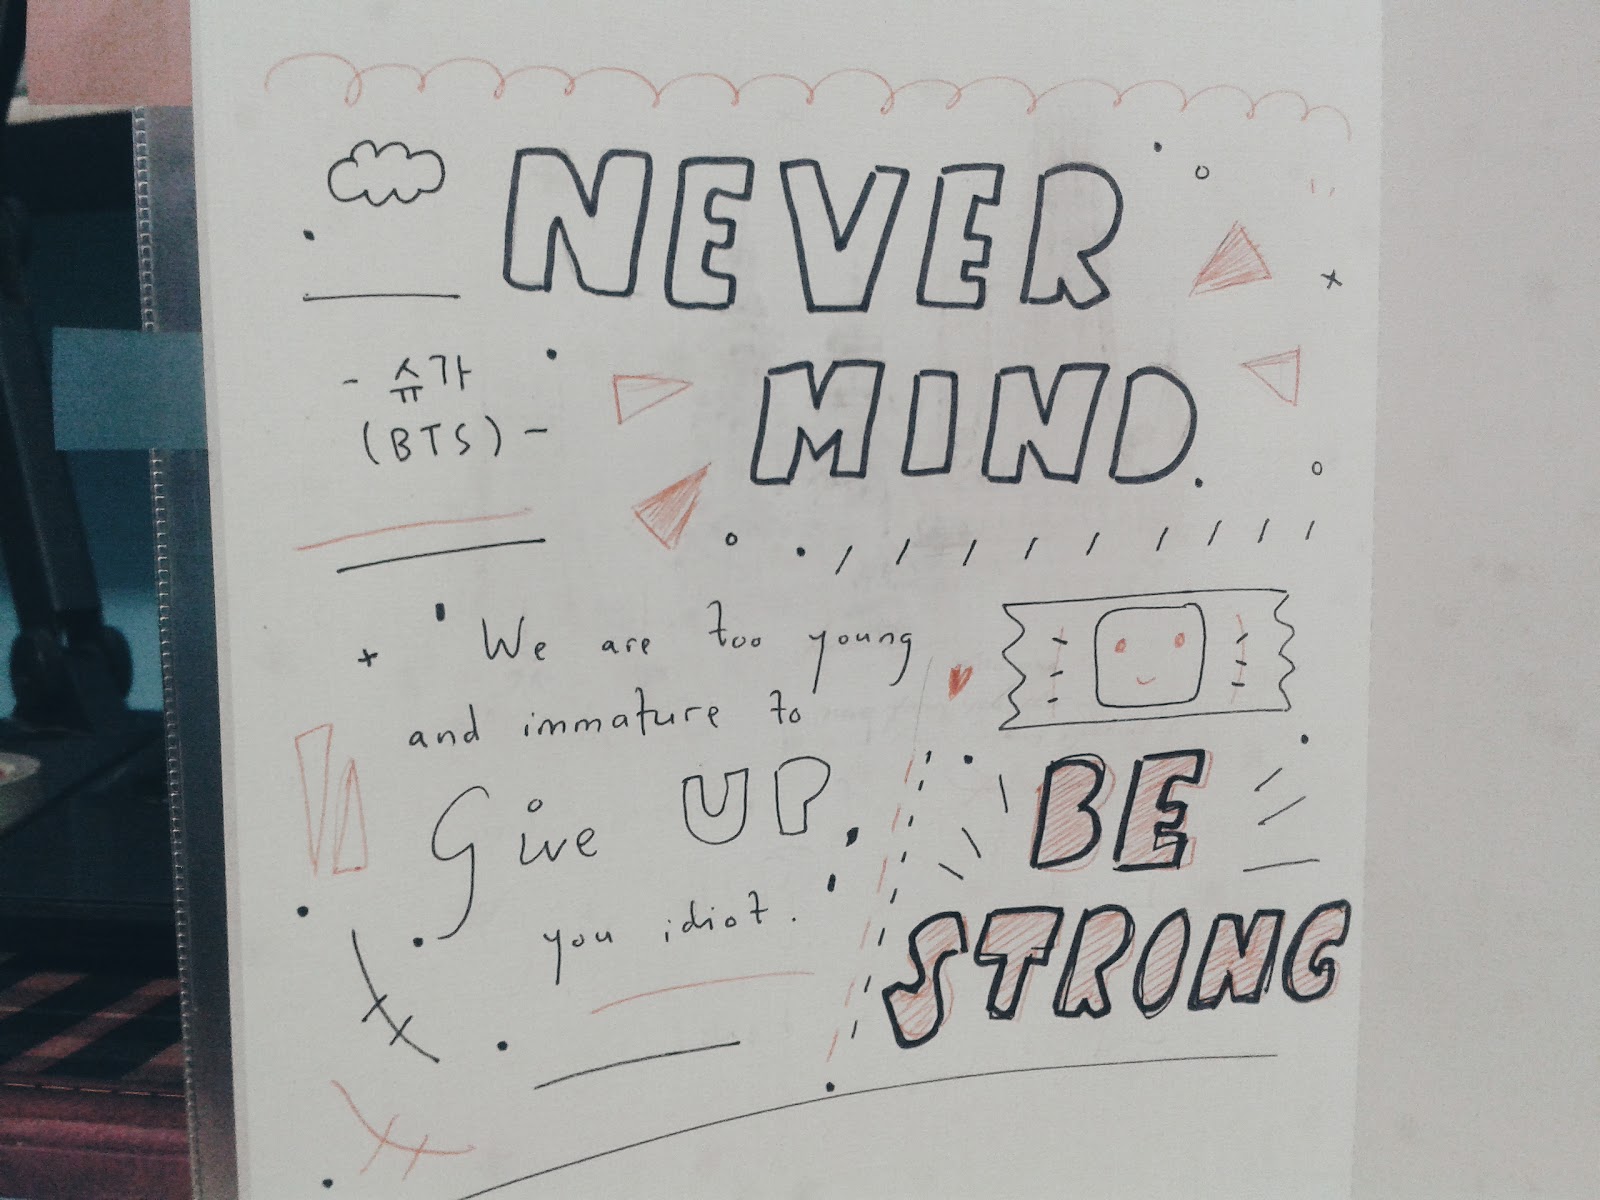 NEVER
MIND.
- 슈가
(BTS) -
' We are too young
and immature to
Give UP,
you idiot. '
BE
STRONG